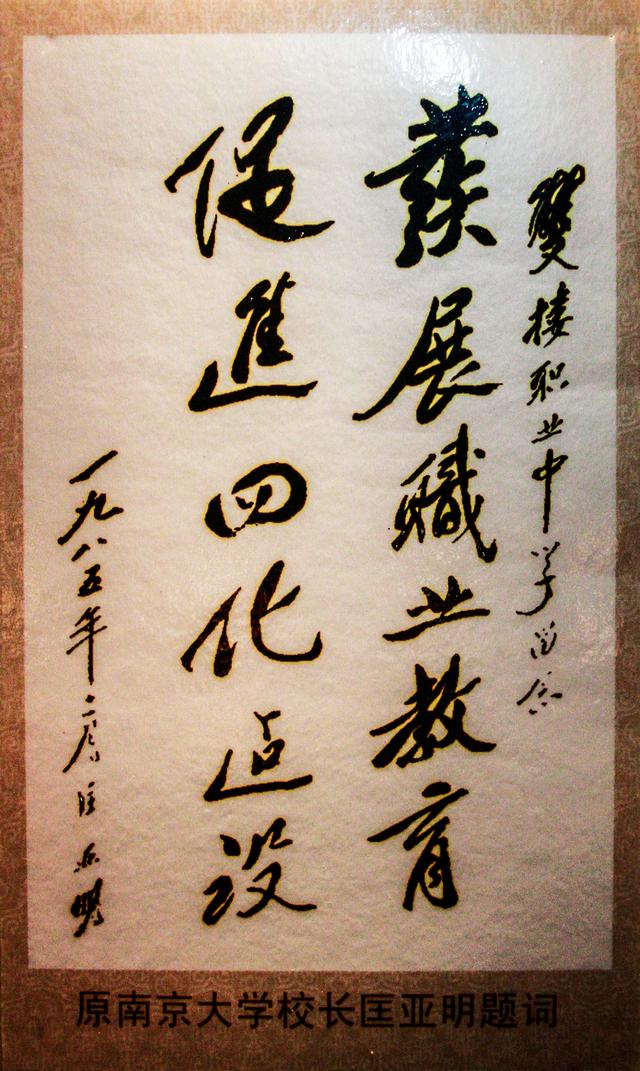 雙楼职业中学留念
發展職业教育
促進四化迠设
一九八五年二月匡亚明
原南京大学校长匡亚明题词